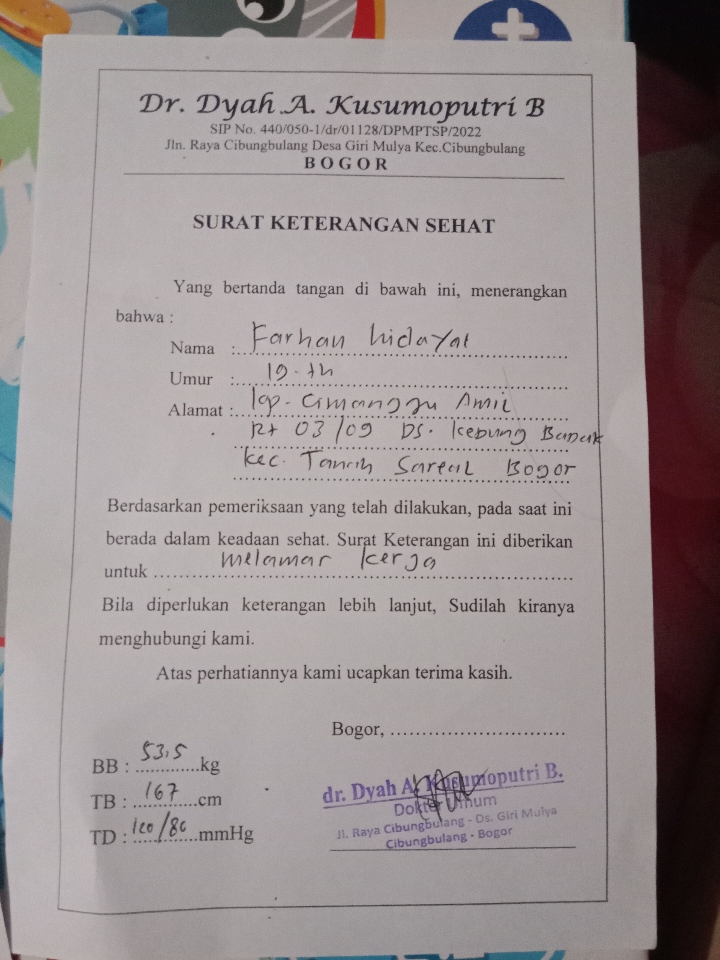 Dr. Dyah A. Kusumoputri B
SIP No. 440/050-1/dr/01128/DPMPTSP/2022
Jln. Raya Cibungbulang Desa Giri Mulya Kec.Cibungbulang
BOGOR
SURAT KETERANGAN SEHAT
Yang bertanda tangan di bawah ini, menerangkan
bahwa :
Nama : Farhan Hidayat
Umur : 19 th
Alamat : kp. Cimanggu Amil
Rt 03/09 Ds. Kebung Baduk
Kec. Tanah Sareal Bogor
Berdasarkan pemeriksaan yang telah dilakukan, pada saat ini
berada dalam keadaan sehat. Surat Keterangan ini diberikan
untuk melamar kerja
Bila diperlukan keterangan lebih lanjut, Sudilah kiranya
menghubungi kami.
Atas perhatiannya kami ucapkan terima kasih.
Bogor, ..............................
BB : 53,5 kg
TB : 167 cm
TD : 120/80 mmHg
dr. Dyah A. Kusumoputri B.
Dokter Umum
Jl. Raya Cibungbulang - Ds. Giri Mulya
Cibungbulang - Bogor